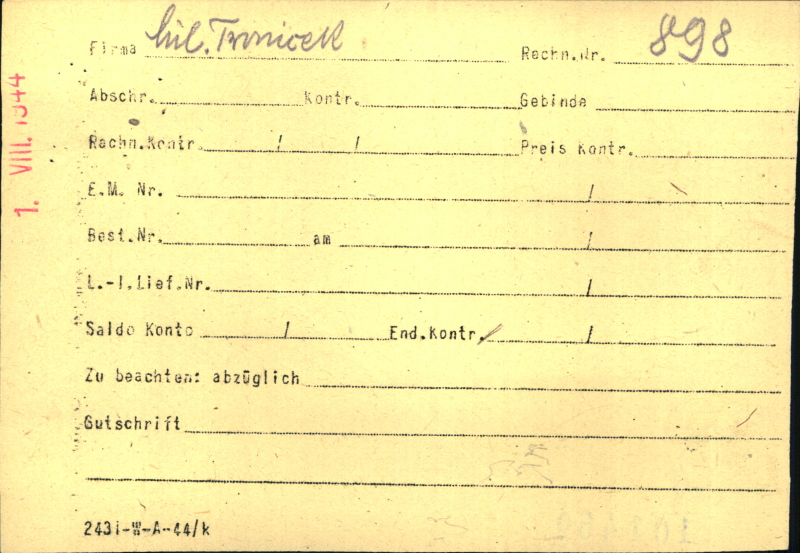 Firma Mil. Tronicek Rechn.Nr. 898
Abschr. Kontr. Gebinde
Rechn.Kontr. / / Preis Kontr.
E.M. Nr. /
Best.Nr. am /
L.-I.Lief.Nr. /
Saldo Konto / End.Kontr. /
Zu beachten: abzüglich
Gutschrift
243i-W-A-44/k
1. VIII. 1944